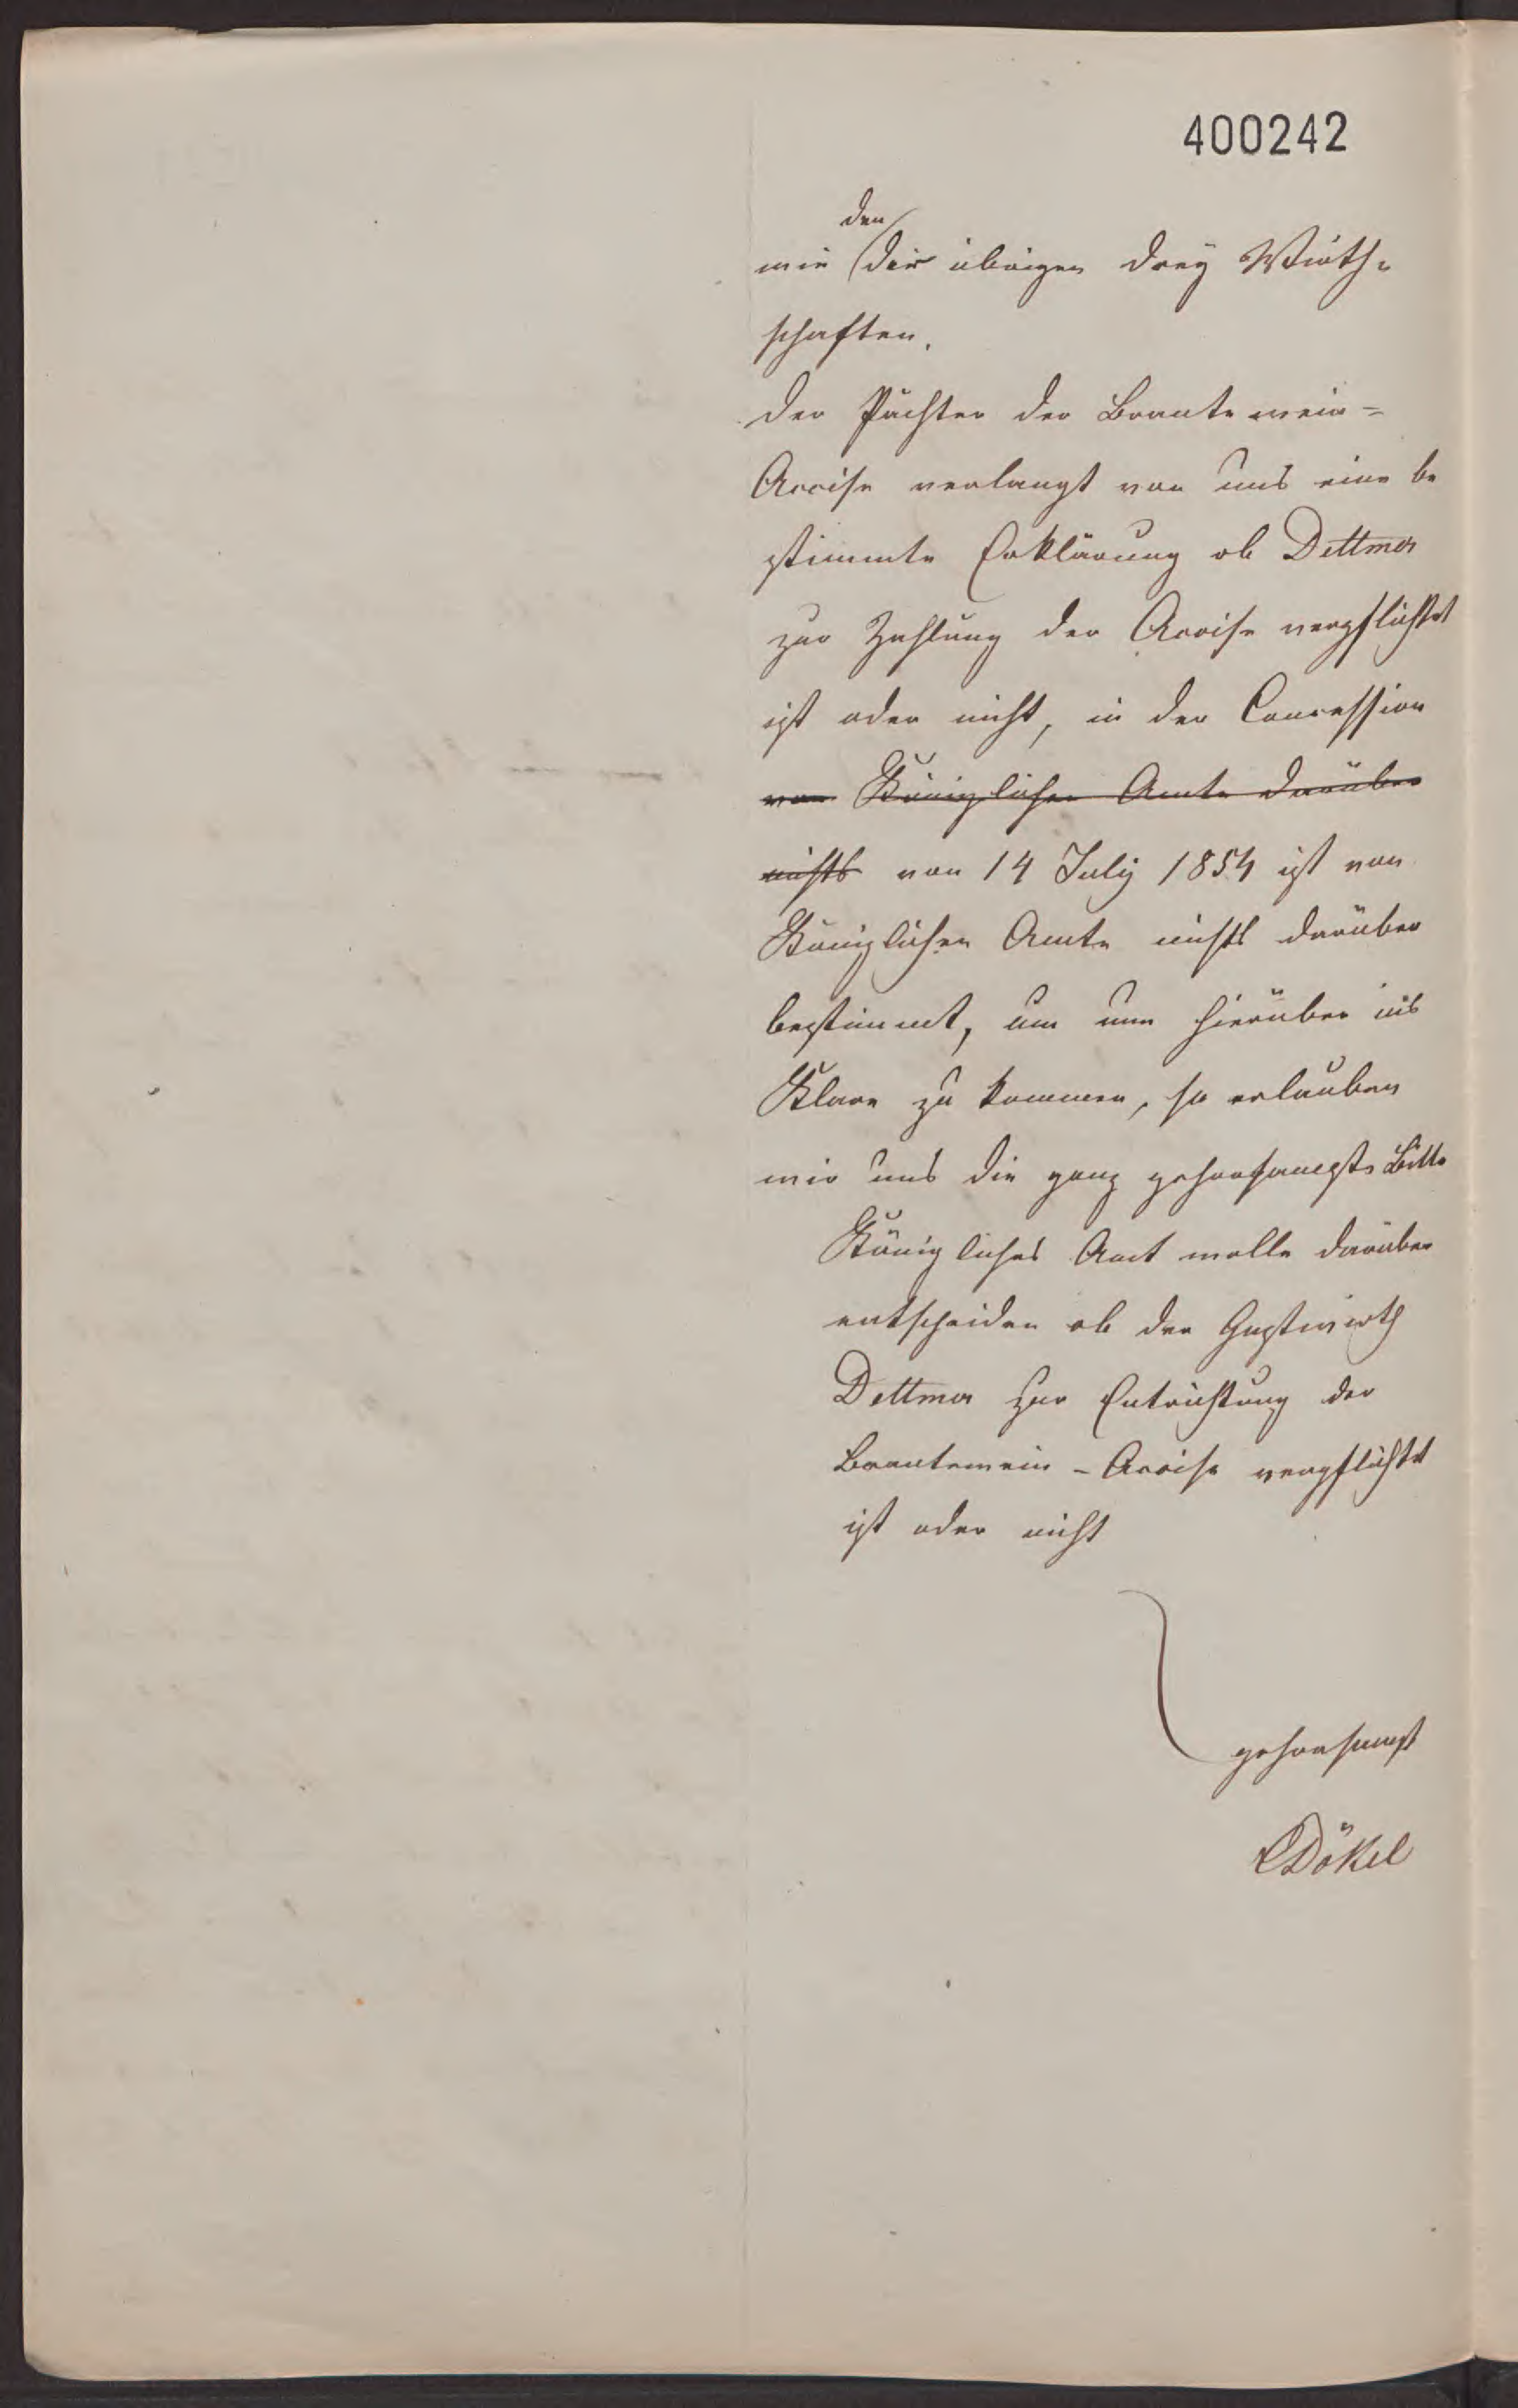 400242
den
wie die übrigen drey Wirth-
schaften.
der Pächter der Brantewein=
Accise verlangt von uns eine be
stimmte Erklärung ob Dettmer
zur Zahlung der Accise verpflichtet
ist oder nicht, in der Concession
von Königlichen Amte darüber
nichts von 14 July 1854 ist von
Königlichen Amte nichts darüber
bestimmt, um nun hierüber ins
Klare zu kommen, so erlauben
wir uns die ganz gehorsamste Bitte
Königliches Amt wolle darüber
entscheiden ob der Gastwirth
Dettmer zur Entrichtung der
Brantewein-Accise verpflichtet
ist oder nicht
gehorsamst
Dökel